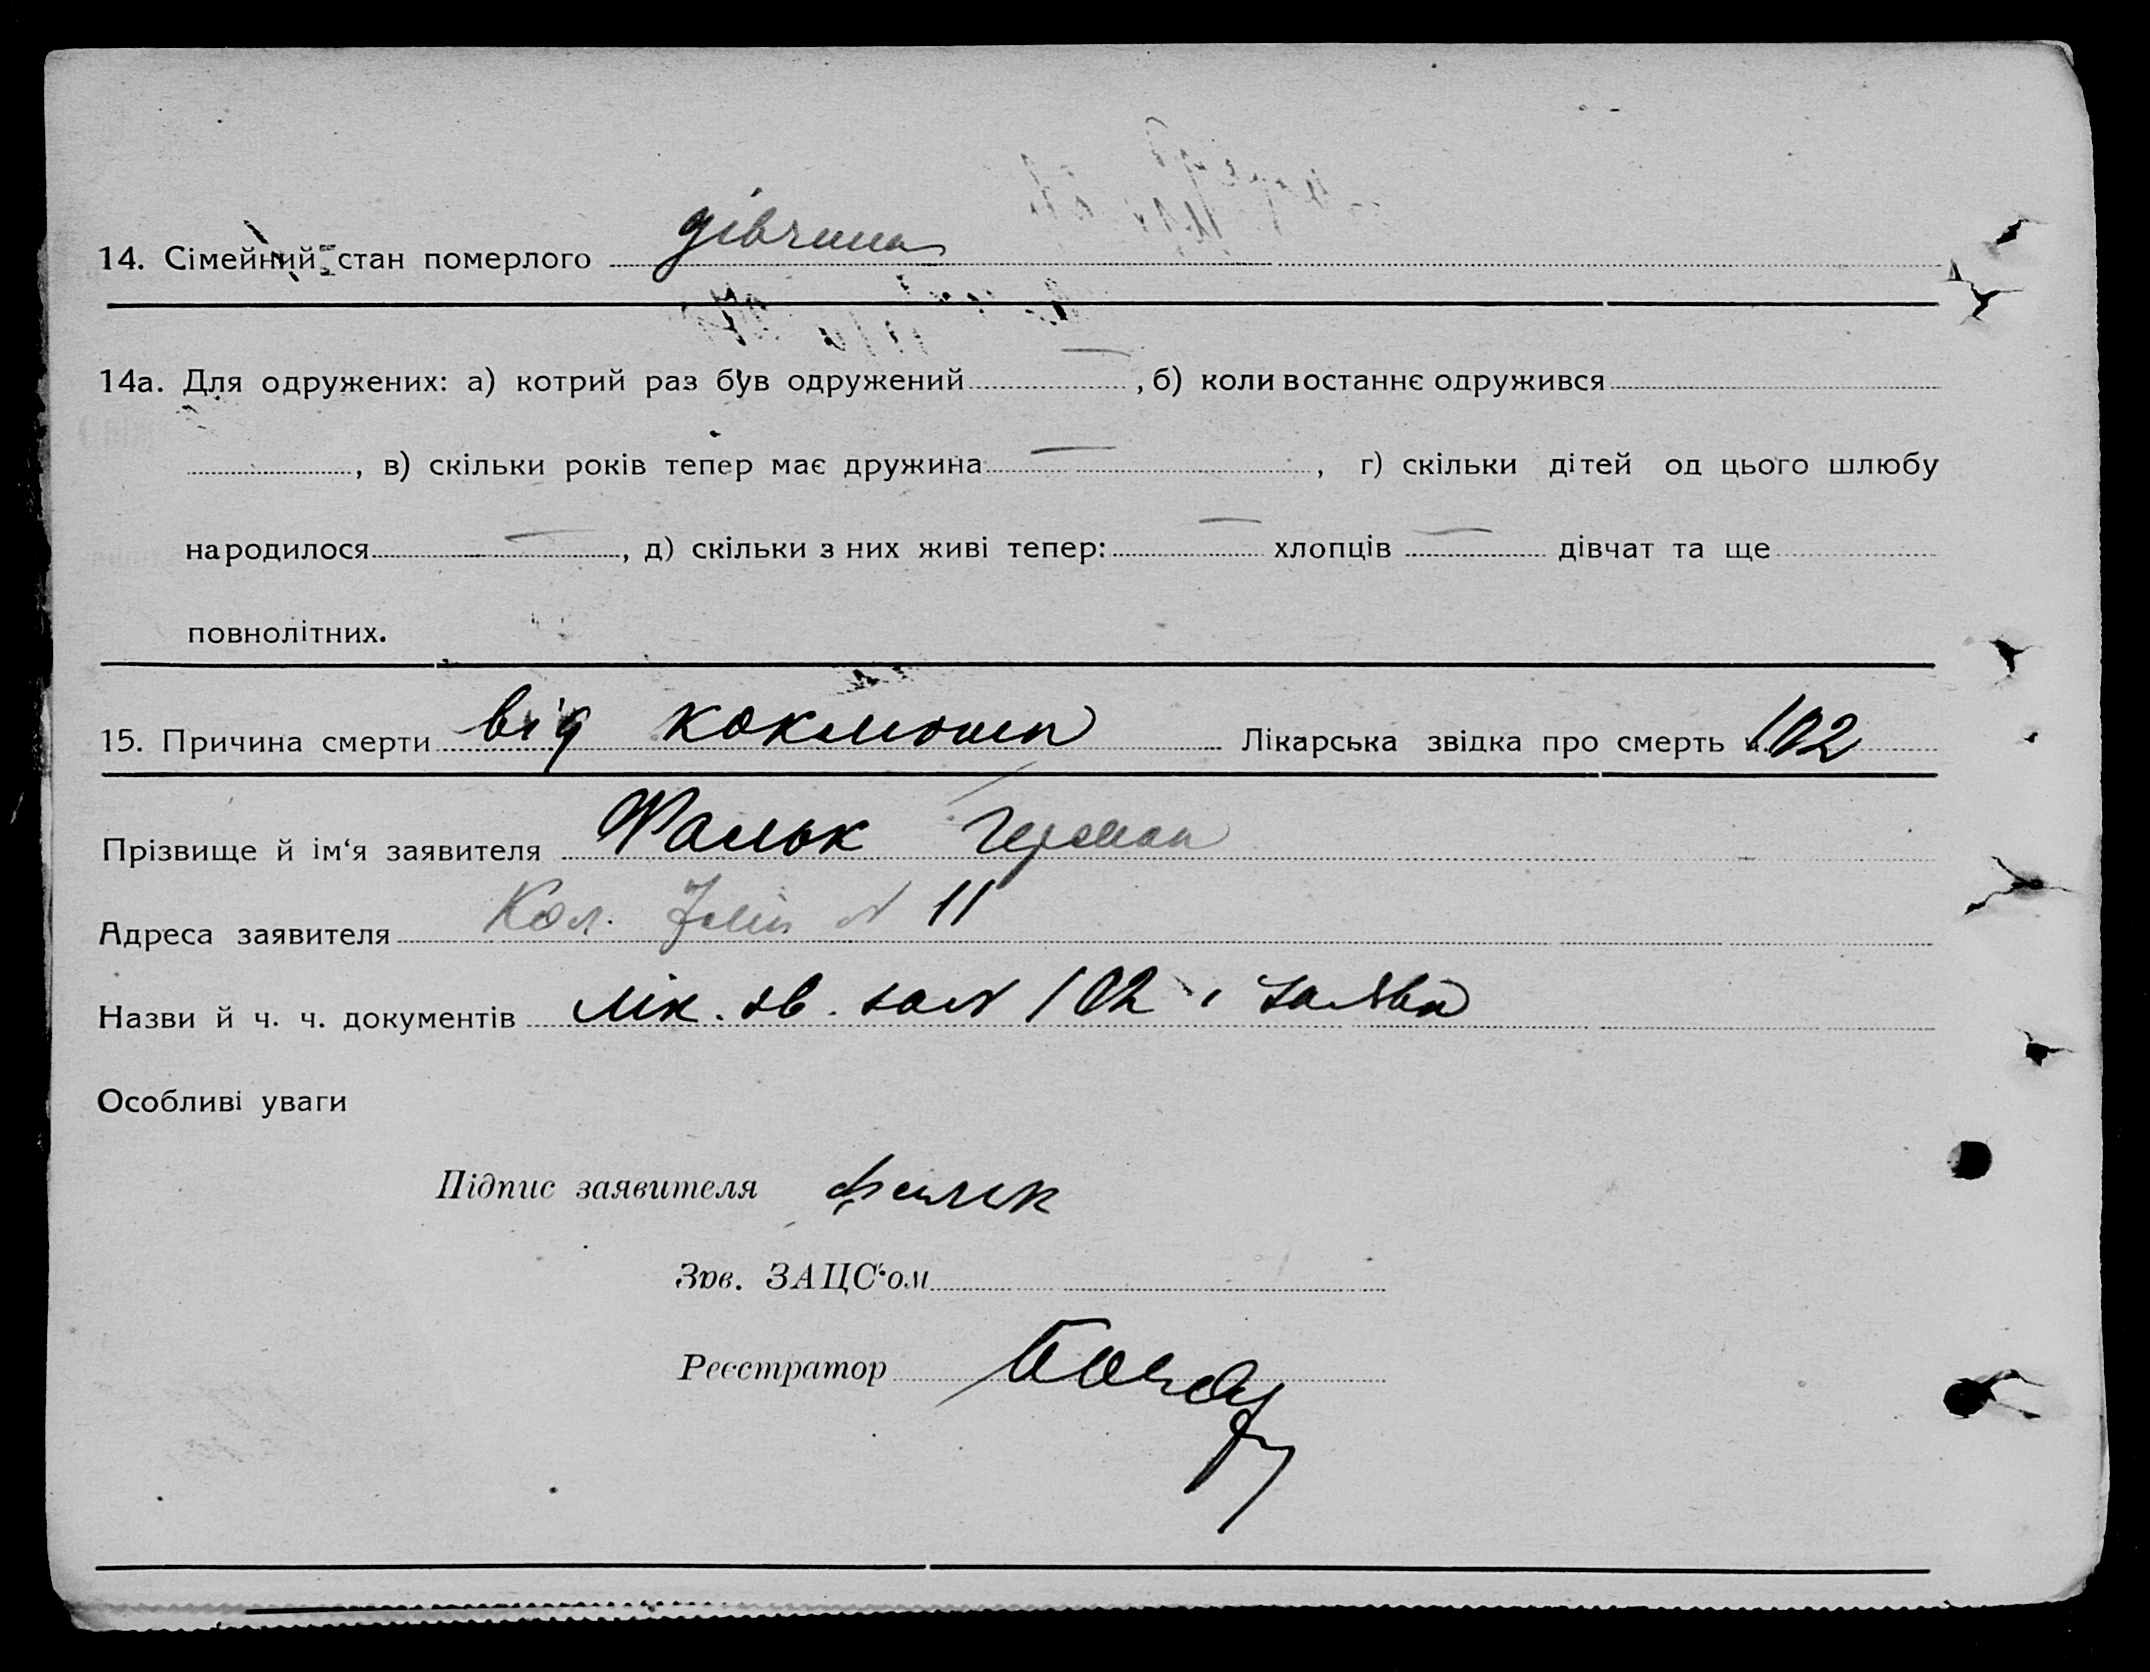 14. Сімейний стан померлого дівчина
14а. Для одружених: а) котрий раз був одружений — , б) коли востаннє одружився
, в) скільки років тепер має дружина — , г) скільки дітей од цього шлюбу
народилося — , д) скільки з них живі тепер: — хлопців — дівчат та ще
повнолітних.
15. Причина смерти від коклюша Лікарська звідка про смерть ч. 102
Прізвище й ім‘я заявителя Фальк Герман
Адреса заявителя Кол. № 11
Назви й ч. ч. документів лік. зв. за № 102 і заява
Особливі уваги
Підпис заявителя Фальк
Зав. ЗАЦС‘ом
Реєстратор